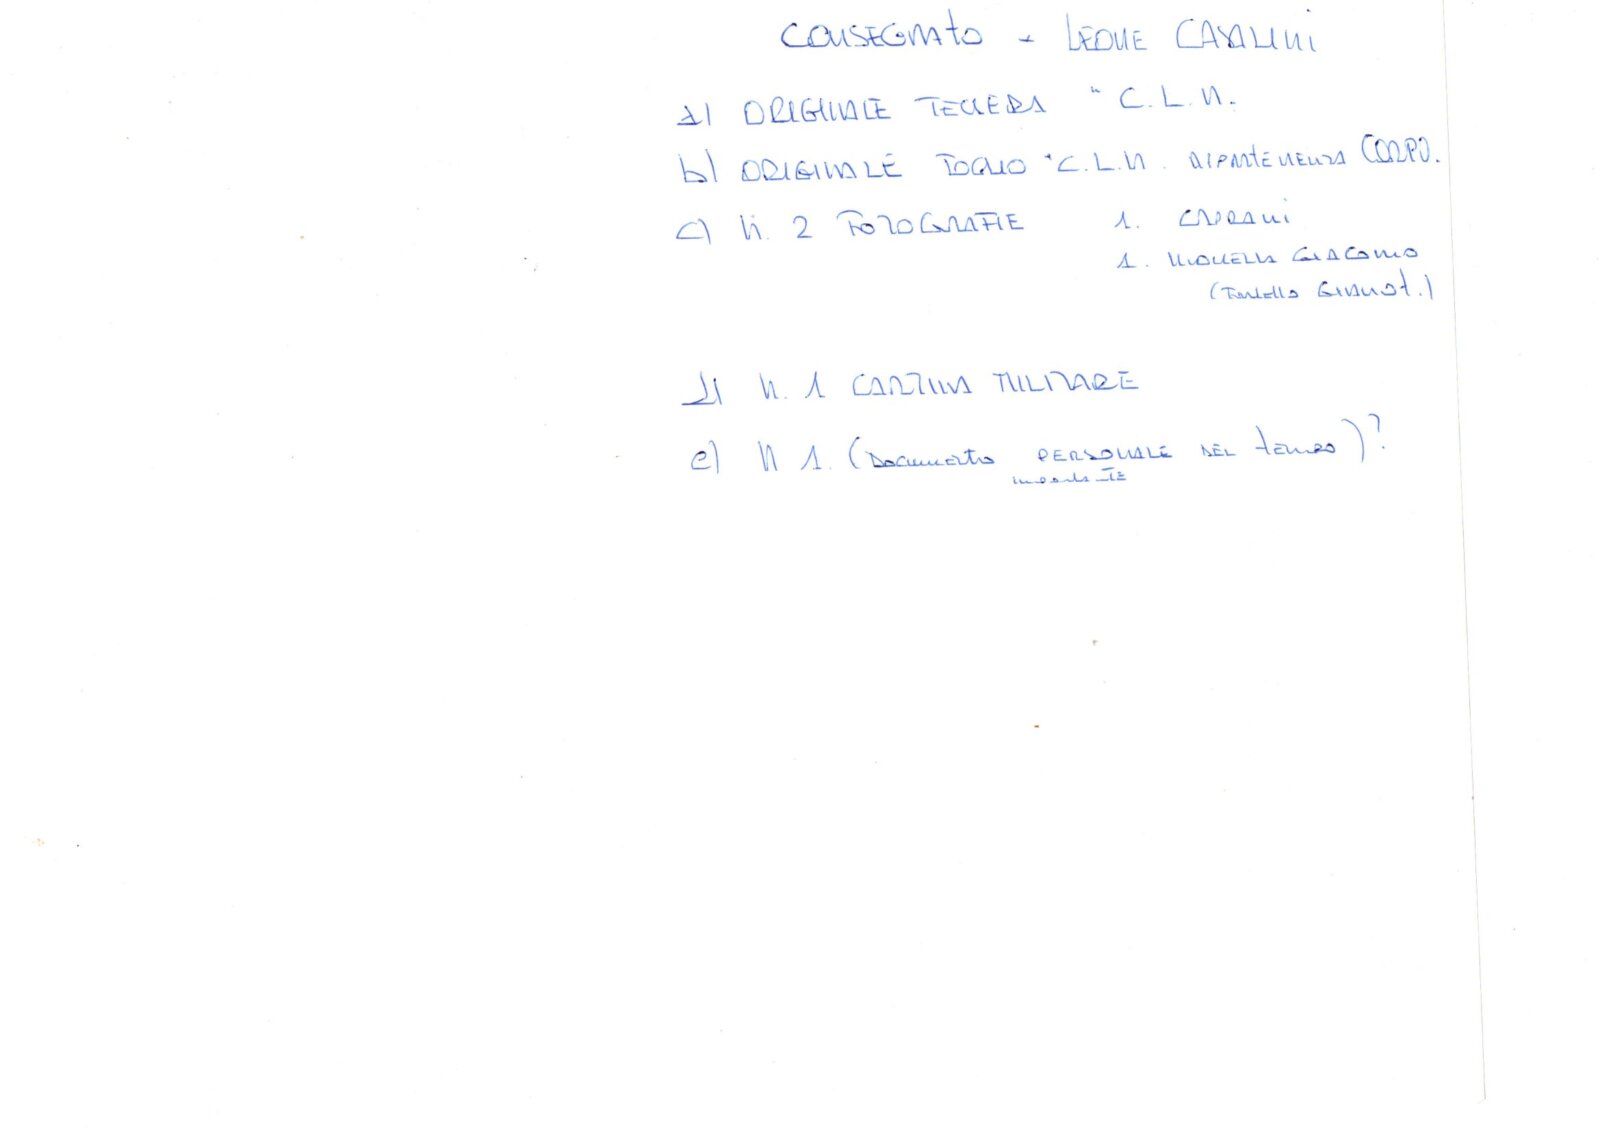 CONSEGNATO - LEONE CASALINI
a) ORIGINALE TESSERA " C.L.N.
b) ORIGINALE FOGLIO "C.L.N. APPARTENENZA CORPO.
c) N. 2 FOTOGRAFIE 1.
1. GIACOMO
(Fratello
d) N. 1 CARTINA MILITARE
e) N 1. (Documento PERSONALE DEL tempo)?
importante